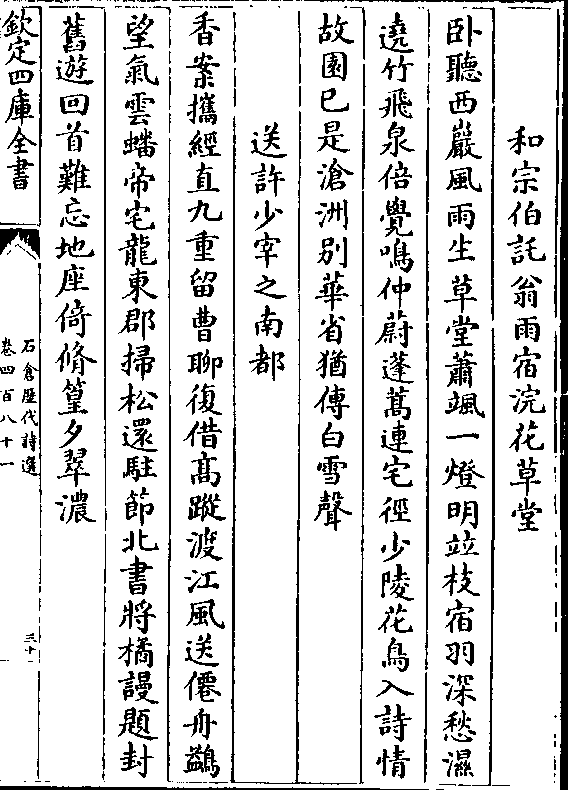 和宗伯託翁雨宿浣花草堂
卧聽西巖風雨生草堂蕭颯一燈明竝枝宿羽深愁濕
遶竹飛泉倍覺鳴仲蔚蓬蒿連宅徑少陵花鳥入詩情
故園已是滄洲別華省猶傳白雪聲
送許少宰之南都
香案攜經直九重留曹聊復借髙蹤渡江風送僊舟鷁
望氣雲蟠帝宅龍東郡掃松還駐節北書將橘謾題封
舊遊回首難忘地座倚脩篁夕翠濃
欽定四庫全書
石倉歴代詩選
卷四百八十一
三十